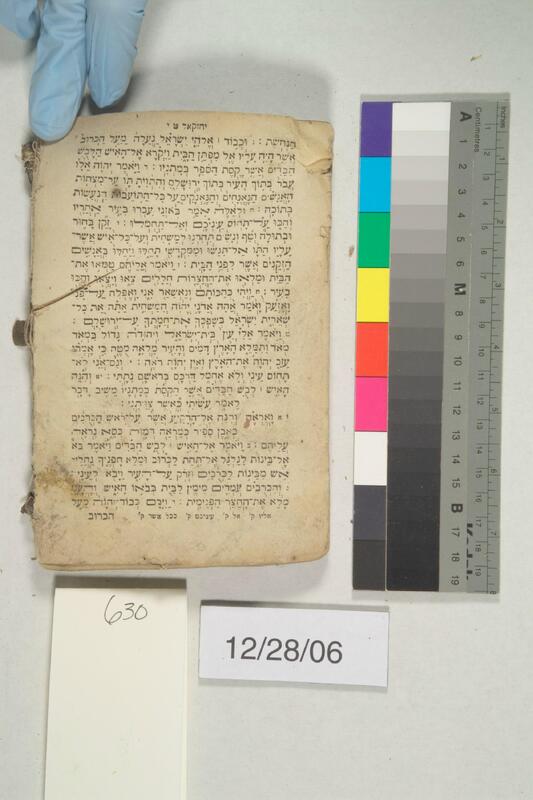 יחזקאל ט י
הנחשת : וכבוד אלהי ישראל נעלה מעל הכרוב
אשר היה עליו אל מפתן הבית ויקרא אל־האיש הלבש
הבדים אשר קסת הספר במתניו : ויאמר יהוה אלו
עבר בתוך העיר בתוך ירושלם והתוית תו על־מצחות
האנשים הנאנחים והנאנקים על כל־התועבות הנעשות
בתוכה : ולאלה אמר באזני עברו בעיר אחריו
והכו על־תחוס עיניכם ואל־תחמלו : זקן בחור
ובתולה וטף ונשים תהרגו למשחית ועל־כל־איש אשר־
עליו התו אל־תגשו וממקדשי תחלו ויחלו באנשים
הזקנים אשר לפני הבית : ויאמר אליהם טמאו את־
הבית ומלאו את־החצרות חללים צאו ויצאו והכו
בעיר : ויהי כהכותם ונאשאר אני ואפלה על־פני
ואזעק ואמר אהה אדני יהוה המשחית אתה את כל־
שארית ישראל בשפכך את־חמתך על־ירושלם :
ויאמר אלי עון בית־ישראל ויהודה גדול במאד
מאד ותמלא הארץ דמים והעיר מלאה מטה כי אמרו
עזב יהוה את־הארץ ואין יהוה ראה : וגם־אני לא־
תחוס עיני ולא אחמל דרכם בראשם נתתי : והנה
האיש לבש הבדים אשר הקסת במתניו משיב דבר
לאמר עשיתי כאשר צויתני :
י א ואראה והנה אל־הרקיע אשר על־ראש הכרבים
כאבן ספיר כמראה דמות כסא נראה
עליהם : ויאמר אל־האיש לבש הבדים ויאמר בא
אל־בינות לגלגל אל־תחת לכרוב ומלא חפניך גחלי־
אש מבינות לכרבים וזרק על־העיר ויבא לעיני :
והכרבים עמדים מימין לבית בבאו האיש והענן
מלא את־החצר הפנימית : וירם כבוד־יהוה מעל
אליו ק׳ אל ק׳ עינכם ק׳ ככל אשר ק׳ הכרוב
Inches
Centimetres
A 1 2 3 4 5 6 M 8 9 10 11 12 13 14 15 B 17 18 19
630
12/28/06